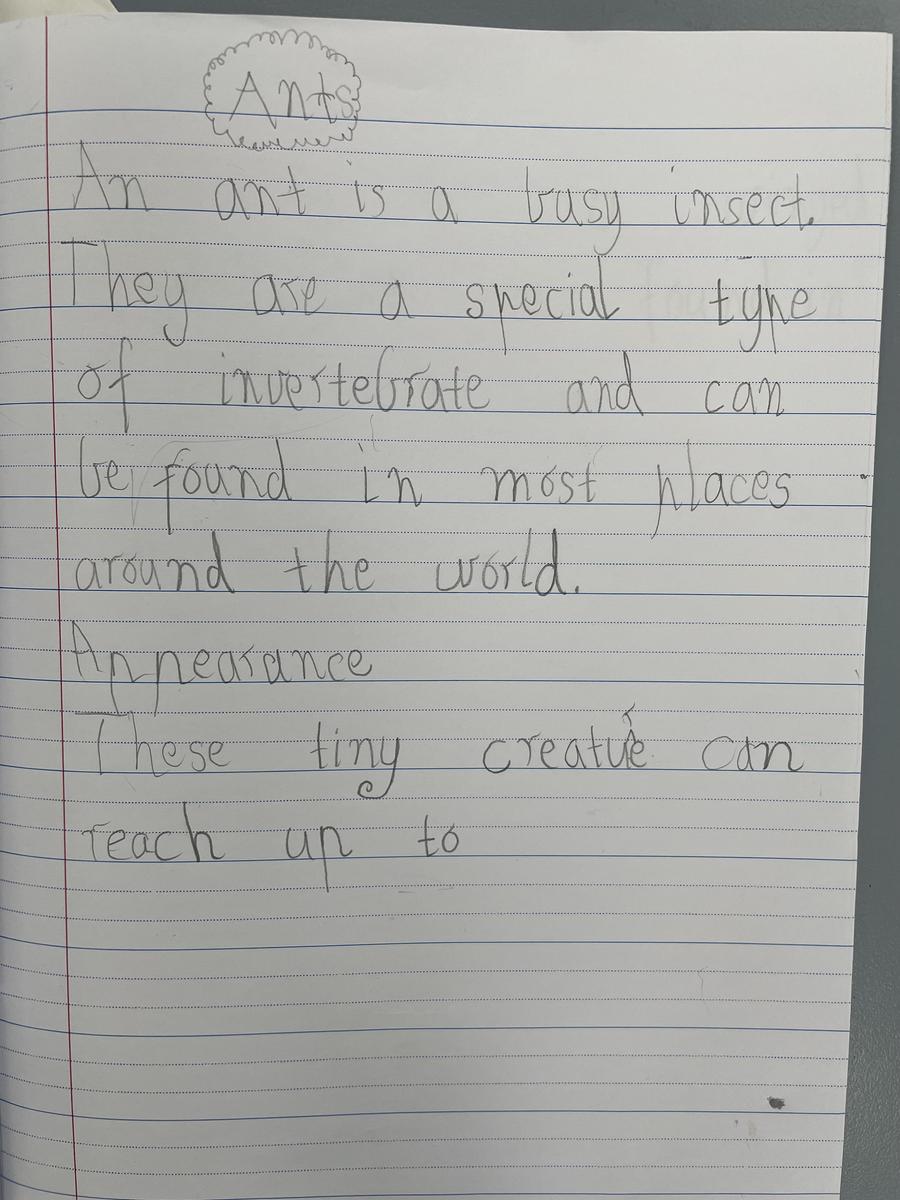 Ants
An ant is a busy insect.
They are a special type
of invertebrate and can
be found in most places
around the world.
Appearance
These tiny creature can
reach up to